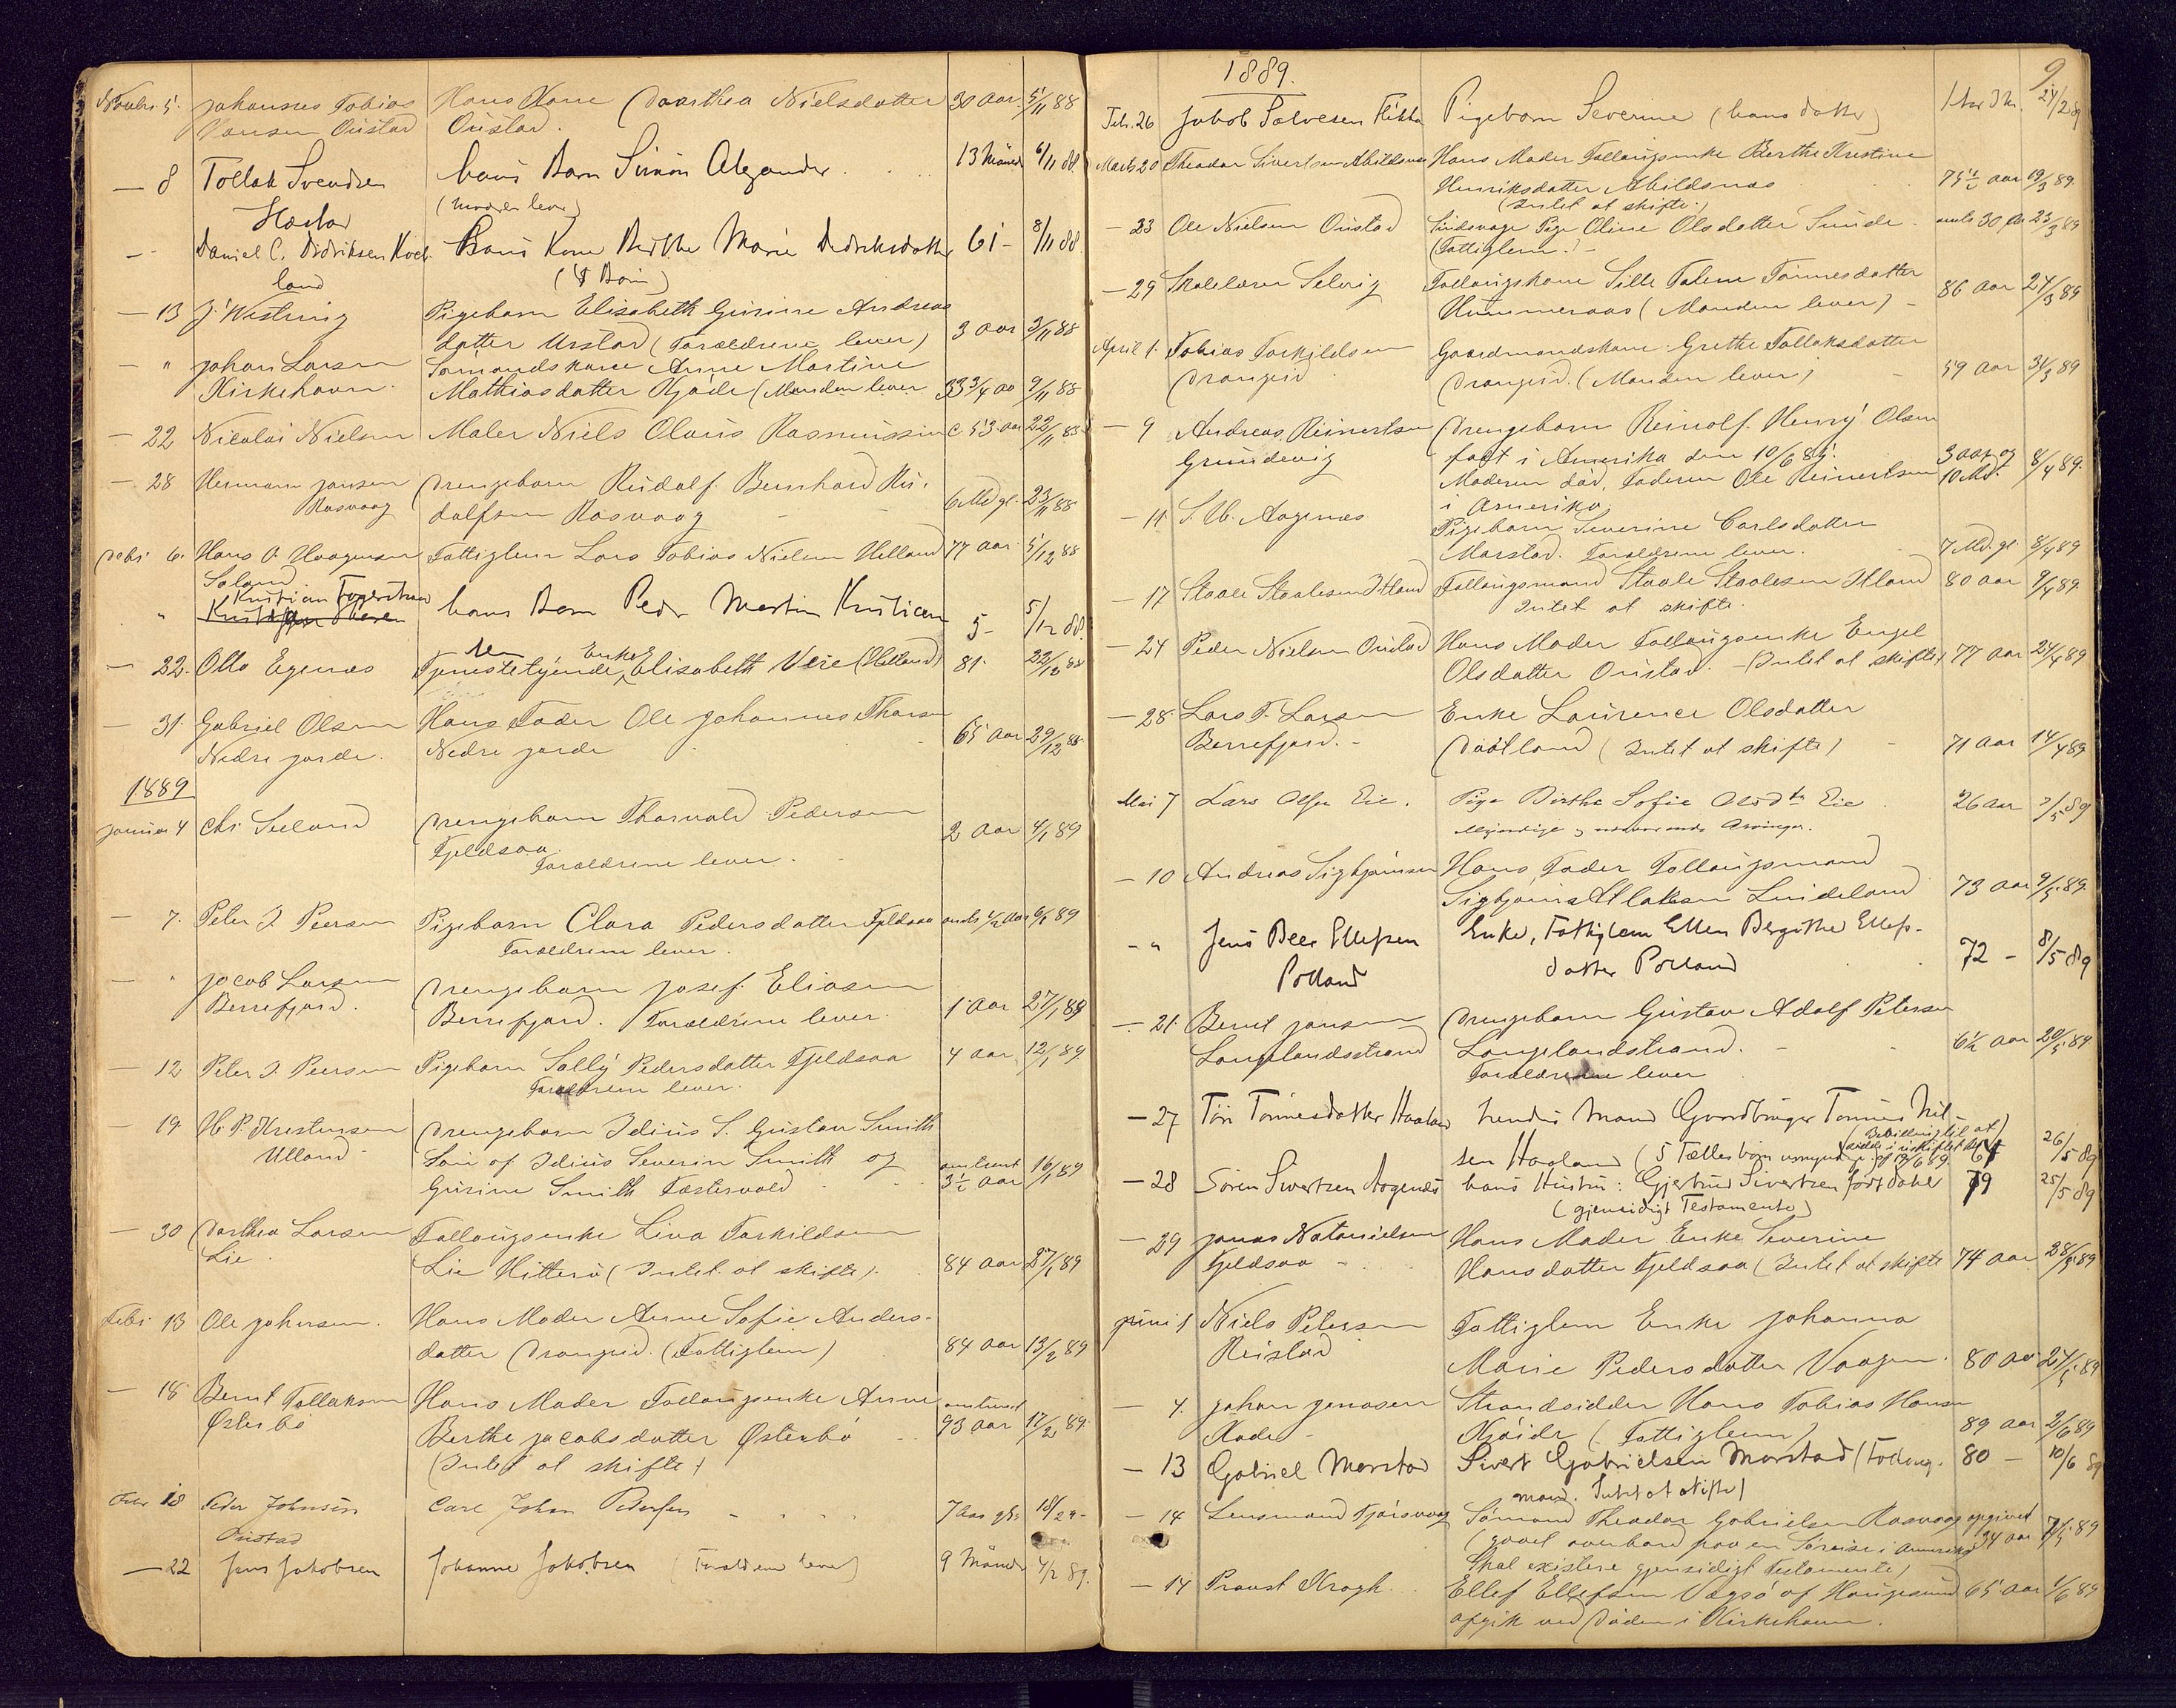 Novbr. 5. Johannes Tobias Hans Kone Dorthea Nielsdatter 30 Aar 5/11 88
Hansen Oustad Oustad.
— 8 Tollak Svendsen hans Barn Simon Alexander 13 Maaned 6/11 88.
(moderen lever)
— Daniel C. Didriksen Hans Kone Berthe Marie Didriksdatter 61 - 8/11 88
land (4 Børn)
— 13 J. Westring Pigebarn Elisabeth Gurine Andreas
datter Urstad (Forældrene lever) 3 Aar 3/11 88
— " Johan Larsen Sømandskone Anne Martine
Kirkehavn. Mathiasdatter Kjøde (Manden lever 33 3/4 aa 9/11 88
— 22 Nicolai Nielsen Maler Niels Olaus Rasmussen c 53 aar 22/11 88
— 28 Hermann Jansen Drengebarn Rudolf Bernhard Ru-
Rasvaag dolfsen Rasvaag 6 Md gl. 23/11 88
Debr 6. Hans O Haagensen Fattiglem Lars Tobias Nielsen Helland 77 aar 5/12 88
" Kristian hans Barn Peder Martin Kristian 5 - 5/12 88.
sen Enke
— 22. Otto Egenæs Tjenestetyende, Elisabeth Vere (Hetland) 81. 22/12 88
— 31. Gabriel Olsen Hans Fader Ole Johannes Thorsen
Nedre Jorde. Nedre Jorde 65 Aar 29/12 88
1889
Januar 4 Chr Seeland Drengebarn Thorvald Pedersen
Fjeldsaa 2 Aar 4/1 89
Forældrene lever.
— 7. Peter J. Peersen Pigebarn Clara Pedersdatter Fjeldsaa 1/2 Aar 6/1 89
Forældrene lever.
— " Jacob Larsen Drengebarn Josef Eliasen
Berrefjord. Berrefjord. Forældrene lever. 1 Aar 27/1 89
— 12 Peter J. Peersen Pigebarn Sally Pedersdatter Fjeldsaa 4 Aar 12/1 89
Forældrene lever.
— 19 H. P. Drengebarn Idius S. Gustav Smith
Ulland Søn af Idius Severin Smith og omtrent
Gurine Smith Fæstervold 3 1/2 Aar 16/1 89
— 30 Dorthea Larsen Follaugsenke Lina Torkildsen
Lie. Lie Hitterø (Intet at skifte). 84 Aar 27/1 89
Febr. 13 Ole Johnsen. Hans Moder Anne Sofie Anders-
datter Drangeid. (Fattiglem) 84 Aar 13/2 89
— 18 Bernt Tollaksen Hans Moder Follaugsenke Anne omtrent
Østerbø Berthe Jacobsdatter Østerbø 93 Aar 17/2 89.
(Intet at skifte)
Febr 18 Peder Johnsen Carl Johan Pedersen 7 Aar
Oustad
— 22 Jens Jakobsen Johanne Jakobsen (Forældrene lever) 9 Maaned 4/2 89.
9.
1889.
Feb. 26 Jakob Salvesen Flikka Pigebarn Severine (hans datter) 24/2 89
Marts 20 Theodor Sivertsen Abildsnæs Hans Moder Follaugsenke Berthe Kristine
Henriksdatter Abildsnæs 75 1/2 aar 19/3 89.
(Intet at skifte.)
— 23 Ole Nielsen Oustad Sindsvage Pige Oline Olsdatter Sunde 30 Aar 23/3 89
(Fattiglem.)
— 29 Skolelærer Selvig Follaugskone Sille Tonnesdatter
Hummeraas (Manden lever) - 86 Aar 24/3 89
April 1. Tobias Torkildsen Gaardmandskone Grethe Tollaksdatter
Drangeid Drangeid. (Manden lever) 59 Aar 31/3 89
— 9 Andreas Reinertsen Drengebarn Reinolf Henry Olsen
Grundevig født i Amerika den 10/6 85. 3 aar og
Moderen død, Faderen Ole Reinertsen 10 Md. 8/4 89.
i Amerika.
— 11 S. B. Aagenæs Pigebarn Severine Carlsdatter
Marstad. Forældrene lever. 7 Md. gl. 8/4 89
— 17 Staale Staalesen Itland Follaugsmand Staale Staalesen Itland 80 aar 9/4 89.
Intet at skifte.
— 24 Peder Nielsen Oustad Hans Moder Follaugsenke Engel
Olsdatter Oustad. - (Intet at skifte) 77 aar 24/4 89
— 28 Lars T. Larsen Enke Laurence Olsdatter
Berrefjord. - Døtland (Intet at skifte) - 71 aar 14/4 89
Mai 7 Lars Olsen Eie. Pige Berthe Sofie Olsdtr Eie 26 aar 7/5 89
Myndige og nærværende Arvinger.
— 10 Andreas Sigbjørnsen Hans Fader Follaugsmand
Sigbjørn Atlaksen Lindeland 73 aar 9/5 89.
— " Jens Beer Ellefsen Enke, Fattiglem Ellen Bergithe Ellefs-
Polland datter Polland 72 - 8/5 89
— 21. Bernt Jansen Drengebarn Gustav Adolf Petersen
Langelandsstrand Langelandstrand. - 6 1/2 aar 20/5 89
Forældrene lever
— 27 Tøri Tønnesdatter Haaland hendes Mand Gaardbruger Tønnes Niel-
sen Haaland (5 Fællesbørn 64 26/5 89
— 28 Søren Sivertsen Aagenæs hans Hustru: Gjertrud Sivertsen født Dahl 79 25/5 89
(gjensidigt Testamente)
— 29 Jonas Natanielsen Hans Moder Enke Severine
Fjeldsaa - Hansdatter Fjeldsaa (Intet at skifte 74 aar 28/5 89
Juni 1 Niels Petersen Fattiglem Enke Johanna
Reistad Marie Pedersdatter Vaagen. 80 aar 27/5 89
— 4. Johan Jonassen Strandsidder Hans Tobias Hansen
Kjøide (Fattiglem) 89 aar 2/6 89
— 13 Gabriel Marstad Sivert Gabrielsen Marstad (Follaug- 80 - 10/6 89
mand. Intet at skifte)
— 14 Lensmand Fjørsvaag Sømand Theodor Gabrielsen Rasvaag opgivet
(gaaet overbord paa en Søreise i Amerika 34 aar 89
Skal existere gjensidigt Testamente)
— 14 Provst Krogh. Ellef Ellefsen Vagsø af Haugesund 65 aar 1/6 89
afgik ved Døden i Kirkehavn.